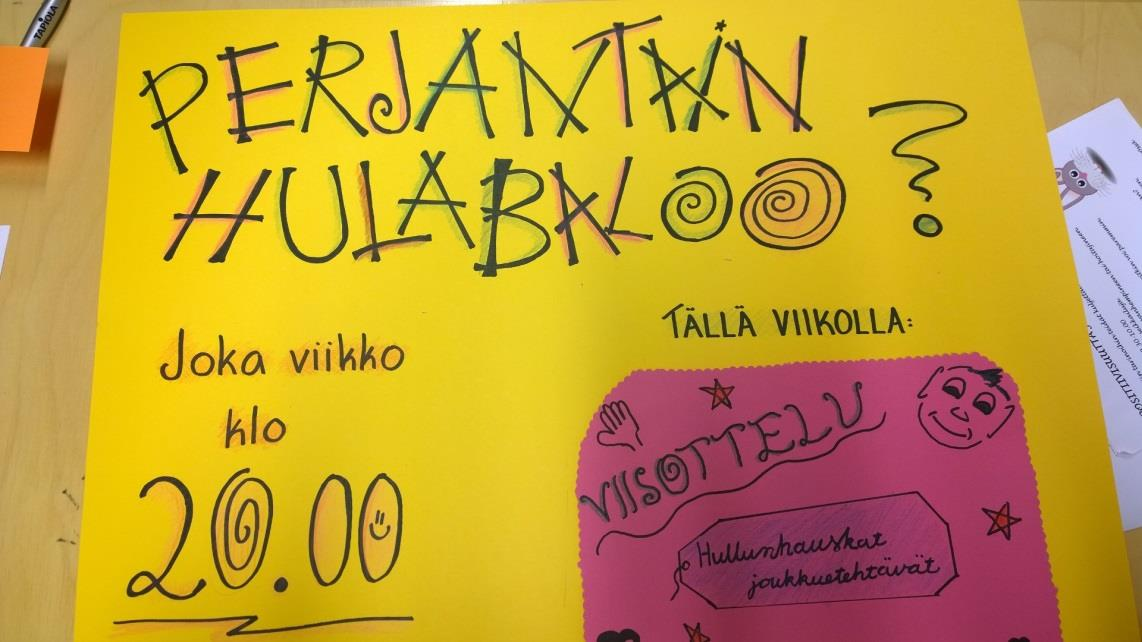 TAPIOLA
PERJANTAIN
HULABALOO?
Joka viikko
klo
20.00
TÄLLÄ VIIKOLLA:
VIISOTTELU
Hullunhauskat
joukkuetehtävät